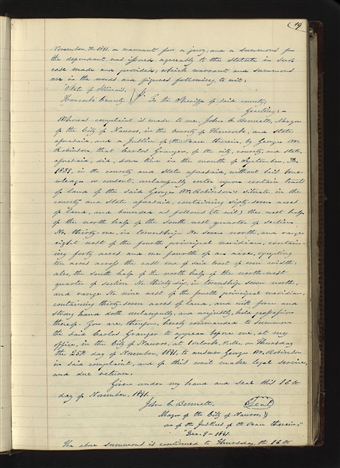 19
November 20. 1841. a warrant for a jury, and a summons for
the defendant was issued agreeably to the statute in such
case made and provided, which warrant and summons
are in the words and figures following to wit;
State of Illinois,
Hancock County } ss. To the Sheriff of said county,
Greeting;
Whereas complaint is made to me, John C. Bennett, Mayor
of the City of Nauvoo, in the County of Hancock, and state
aforesaid and a Justice of the Peace therein, by George W.
Robinson that Charles Granger, of the city, county, and state,
aforesaid, did, some time in the month of September, AD
1838, in the county and state aforesaid, without
or consent, unlawfully enter upon certain tracts
of Land of the said George W. Robinson's situate in the
county and state aforesaid, containing sixty seven acres
of land, and bounded as follows (to wit) the west half
of the north half of the south west quarter of section
No. thirty one, in Township No. seven north, and range
eight west of the fourth principal meridian, contain-
ing forty acres and one fourth of an acre, excepting
ten acres across the east end of said tract of one
also the south half of the north half of the north west
quarter of section No. thirty six, in township seven north,
and range No. nine west of the fourth principal meridian,
containing thirty seven acres of land, and with force and
strong hand doth unlawfully, and unjustly, hold possession
thereof. You are, therefore, hereby commanded to summon
the said Charles Granger to appear before me, at my
office, in the City of Nauvoo, at o'clock, P.M. on Thursday
the 25th day of November, 1841, to answer George W. Robinson
in said complaint, and of this writ make legal service,
and due return.
Given under my hand and seal this 20th
day of November, 1841.
John C. Bennett, {Seal}
Mayor of the City of Nauvoo, &
one of the Justices of the Peace therein.
Dec. 9 - 1841
The above summons is continued to Thursday, the 16th